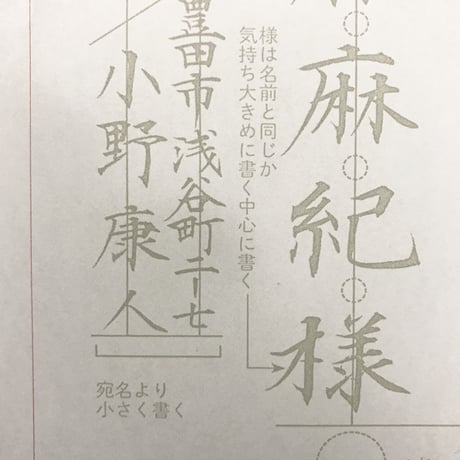 麻紀様
様は名前と同じか
気持ち大きめに書く中心に書く
豊田市浅谷町二十七
小野康人
宛名より
小さく書く